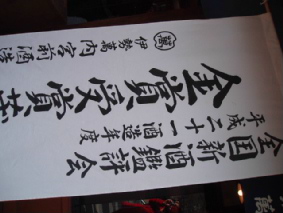 全国新酒鑑評会
平成二十一酒造年度
金賞受賞
萬 伊勢萬内宮前酒造